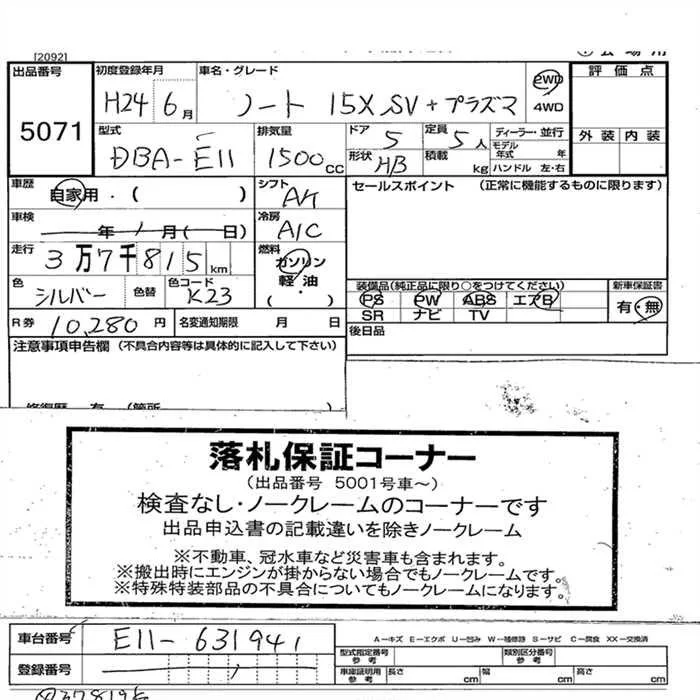 [2092]
出品番号 初度登録年月 車名・グレード 評価点
5071 H24 6月 ノート 15X SV+プラズマ 2WD 4WD
型式 排気量 ドア 定員 ディーラー・並行 外装 内装
DBA-E11 1500cc 5 5人 モデル年式 年
形状 HB 積載 kg ハンドル 左・右
車歴 自家用・( ) シフト AK セールスポイント (正常に機能するものに限ります)
車検 年 月( 日) 冷房 A/C
走行 3万7千815km 燃料 ガソリン 軽油 ( ・ )
色 シルバー 色替 色コード K23 装備品(純正品に限り○をつけてください) 新車保証書
PS PW ABS エアB 有・無
SR ナビ TV
R券 10,280円 名変通知期限 月 日 後日品
注意事項申告欄 (不具合内容等は具体的に記入して下さい)
修復歴 有 (箇所
落札保証コーナー
(出品番号 5001号車〜)
検査なし・ノークレームのコーナーです
出品申込書の記載違いを除きノークレーム
※不動車、冠水車など災害車も含まれます。
※搬出時にエンジンが掛からない場合でもノークレームです。
※特殊特装部品の不具合についてもノークレームになります。
車台番号 E11-631941 A-キズ E-エクボ U-凹み W-補修跡 S-サビ C-腐食 XX-交換済
登録番号 型式指定番号 参考 類別区分番号 参考
車庫証明用 参考 長さ cm 幅 cm 高さ cm